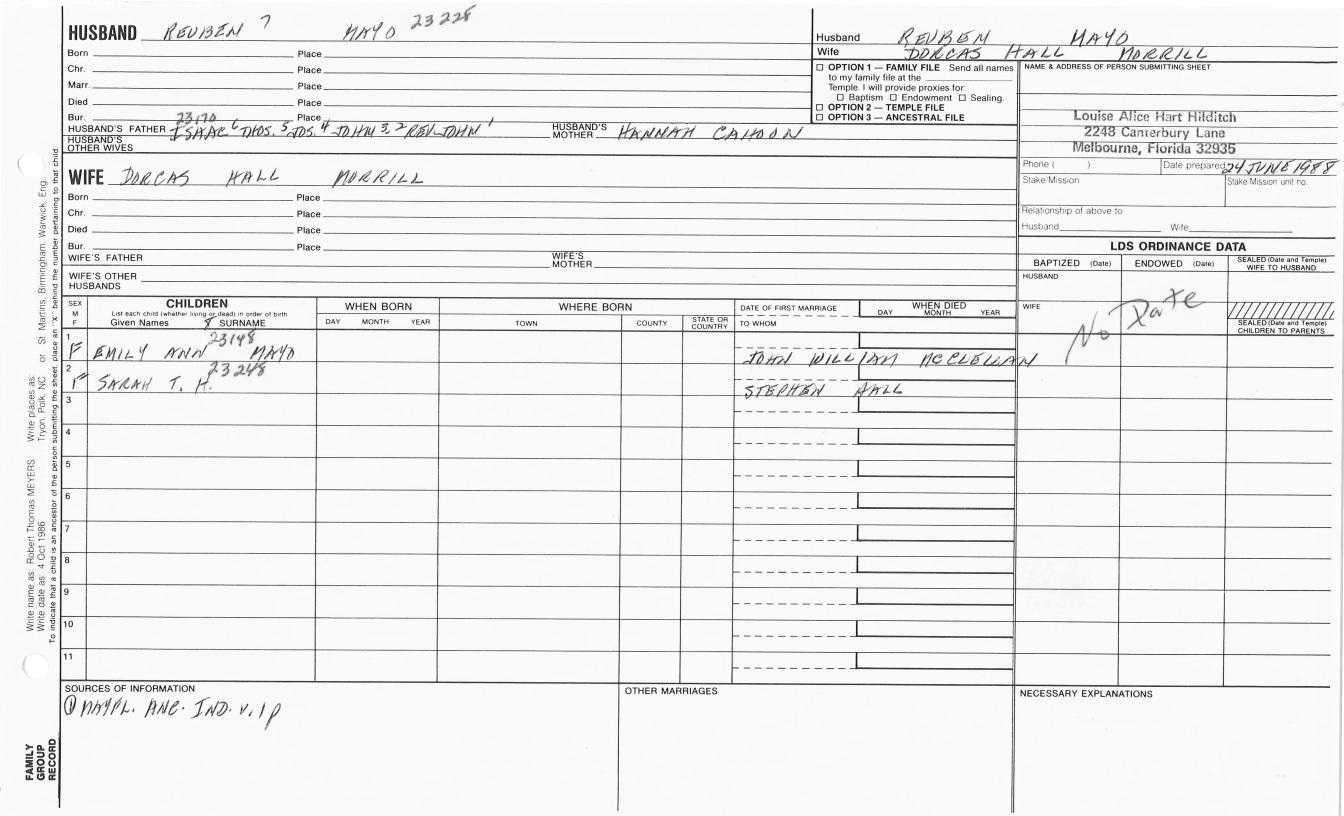 HUSBAND REUBEN 7 MAYO 23228
Born Place
Chr. Place
Marr Place
Died Place
Bur. Place
23170
HUSBAND'S FATHER ISAAC 6 THOS. 5 JOS. 4 JOHN 3, 2 REV. JOHN 1 HUSBAND'S MOTHER HANNAH CALHOON
HUSBAND'S OTHER WIVES
WIFE DORCAS HALL MORRILL
Born Place
Chr. Place
Died Place
Bur. Place
WIFE'S FATHER WIFE'S MOTHER
WIFE'S OTHER HUSBANDS
Husband REUBEN MAYO
Wife DORCAS HALL MORRILL
☐ OPTION 1 — FAMILY FILE Send all names
to my family file at the
Temple. I will provide proxies for:
☐ Baptism ☐ Endowment ☐ Sealing.
☐ OPTION 2 — TEMPLE FILE
☐ OPTION 3 — ANCESTRAL FILE
NAME & ADDRESS OF PERSON SUBMITTING SHEET
Louise Alice Hart Hilditch
2243 Canterbury Lane
Melbourne, Florida 32935
Phone ( ) Date prepared 24 JUNE 1988
Stake/Mission Stake Mission unit no.
Relationship of above to
Husband Wife
LDS ORDINANCE DATA
BAPTIZED (Date) ENDOWED (Date) SEALED (Date and Temple) WIFE TO HUSBAND
HUSBAND
WIFE
No Date
SEALED (Date and Temple) CHILDREN TO PARENTS
SEX M F
CHILDREN
List each child (whether living or dead) in order of birth
Given Names 8 SURNAME
WHEN BORN
DAY MONTH YEAR
WHERE BORN
TOWN COUNTY STATE OR COUNTRY
DATE OF FIRST MARRIAGE
TO WHOM
WHEN DIED
DAY MONTH YEAR
1 F EMILY ANN 23198 MAYO JOHN WILLIAM MCCLELLAN
2 F SARAH T. H. 23248 STEPHEN HALL
3
4
5
6
7
8
9
10
11
SOURCES OF INFORMATION
① MAYFL. ANC. IND. V. 1 P
OTHER MARRIAGES
NECESSARY EXPLANATIONS
Write name as: Robert Thomas MEYERS Write places as: Tryon, Polk, NC or St Martins, Birmingham, Warwick, Eng.
Write date as: 4 Oct 1986
To indicate that a child is an ancestor of the person submitting the sheet, place an "X" behind the number pertaining to that child.
FAMILY GROUP RECORD